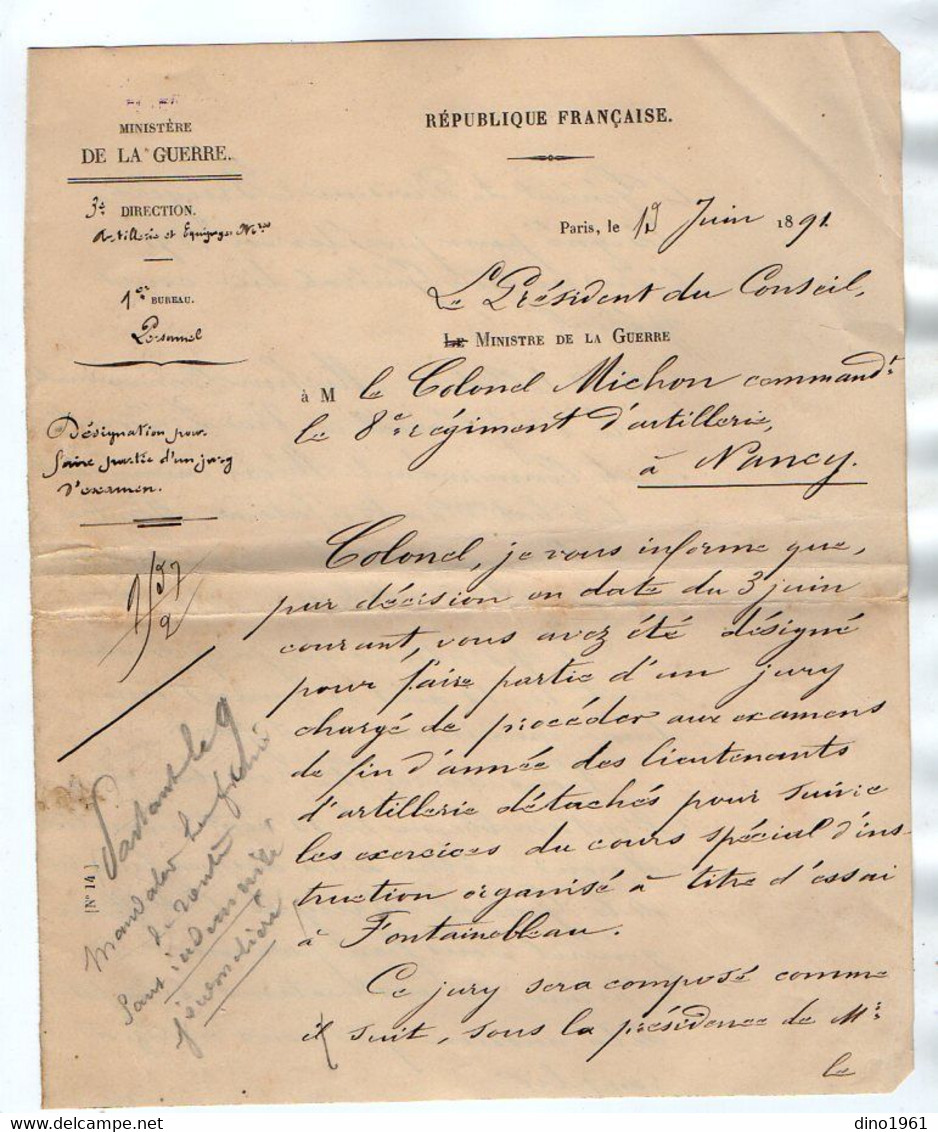 MINISTÈRE
DE LA GUERRE.
3e DIRECTION.
Artillerie et Equipages Mres
1er BUREAU.
Personnel
Désignation pour
faire partie d'un jury
d'examen.
[No 14.]
Partant le 9
Mandater
de route
Sans indemnité
journalière
RÉPUBLIQUE FRANÇAISE.
Paris, le Juin 1891
Le Président du Conseil,
LE MINISTRE DE LA GUERRE
à M le Colonel Michon command.t
le 8e régiment d'artillerie,
à Nancy.
Colonel, je vous informe que,
par décision en date du 3 juin
courant, vous avez été désigné
pour faire partie d'un jury
chargé de procéder aux examens
de fin d'année des lieutenants
d'artillerie détachés pour suivre
les exercices du cours spécial d'ins
truction organisé à titre d'essai
à Fontainebleau.
Ce jury sera composé comme
il suit, sous la présidence de Mr
le
dino1961